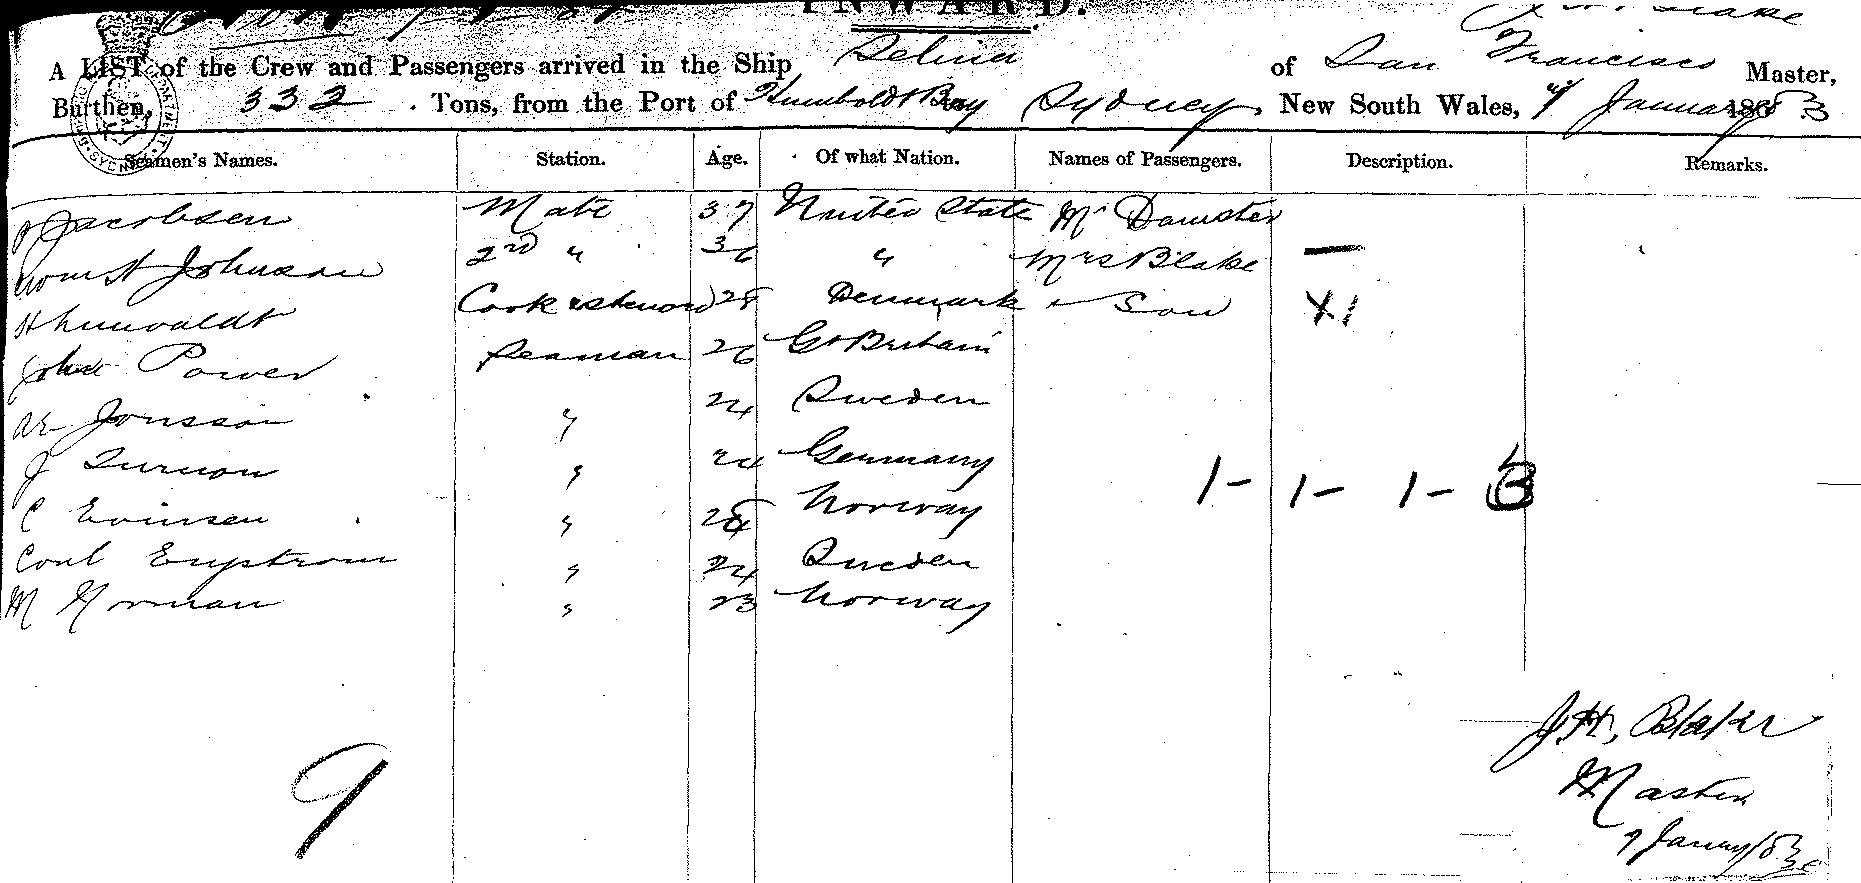 INWARD.
A LIST of the Crew and Passengers arrived in the Ship Selina of San Francisco Master,
Burthen, 332 Tons, from the Port of Humboldt Bay Sydney, New South Wales, 7 January 1883
Seamen's Names. Station. Age. Of what Nation. Names of Passengers. Description. Remarks.
Jacobsen Mate 37 United State Mr
Johnson 2nd " 36 " Mrs Blake —
Cook & steward 28 Denmark & Son X1
John Power Seaman 26 Gt Britain
Jonsson " 24 Sweden
J " 24 Germany
C Evinsen " Norway
" 24 Sweden
M " 23 Norway
1- 1- 1- 3
J.H. Blake
Master
7 Jany/83
9